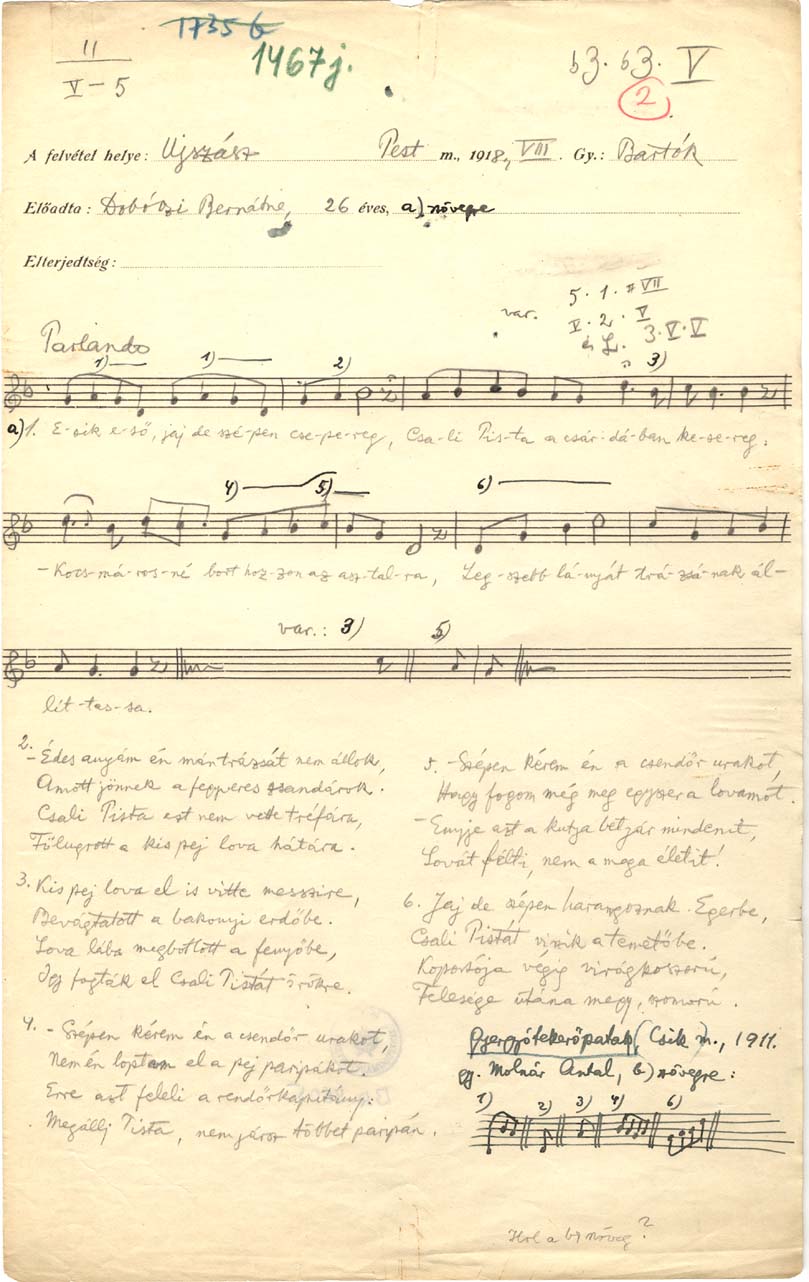 11
V – 5
1735 b
1467 j.
b3. b3. V
2
A felvétel helye: Ujszász Pest m., 1918, VIII. Gy.: Bartók
Előadta: Dobóczi Bernátné, 26 éves, a) szövegre
Elterjedtség:
var. 5. 1. #VII
V. 2. V
és 3. V. V
Parlando
1) 1) 2) 3)
a) 1. E-sik e-ső, jaj de szé-pen cse-pe-reg, Csa-li Pis-ta a csár-dá-ban ke-se-reg.
4) 5) 6)
– Kocs-má-ros-né bort hoz-zon az asz-tal-ra, Leg-szebb lá-nyját strá-zsá-nak ál-
var.: 3) 5)
lít-tas-sa.
2. – Édes anyám én már strázsát nem állok,
Amott jönnek a fegyveres zsandárok.
Csali Pista ezt nem vette tréfára,
Fölugrott a kis pej lova hátára.
3. Kis pej lova el is vitte messzire,
Bevágtatott a bakonyi erdőbe.
Lova lába megbotlott a fenyőbe,
Így fogták el Csali Pistát örökre.
4. – Szépen kérem én a csendőr urakot,
Nem én loptam el a pej paripákot.
Erre azt feleli a rendőrkapitány:
Megállj Pista, nem jársz többet paripán.
5. – Szépen kérem én a csendőr urakot,
Hagy fogom még meg egyszer a lovamot.
– Ennye azt a kutya betyár mindenit,
Lovát félti, nem a maga életit!
6. Jaj de szépen harangoznak Egerbe,
Csali Pistát viszik a temetőbe.
Koporsója végig virágkoszorú,
Felesége utána megy, szomorú.
Gyergyótekerőpatak (Csik m.), 1911.
gy. Molnár Antal, b) szövegre:
1) 2) 3) 4) 6)
Hol a b) szöveg?